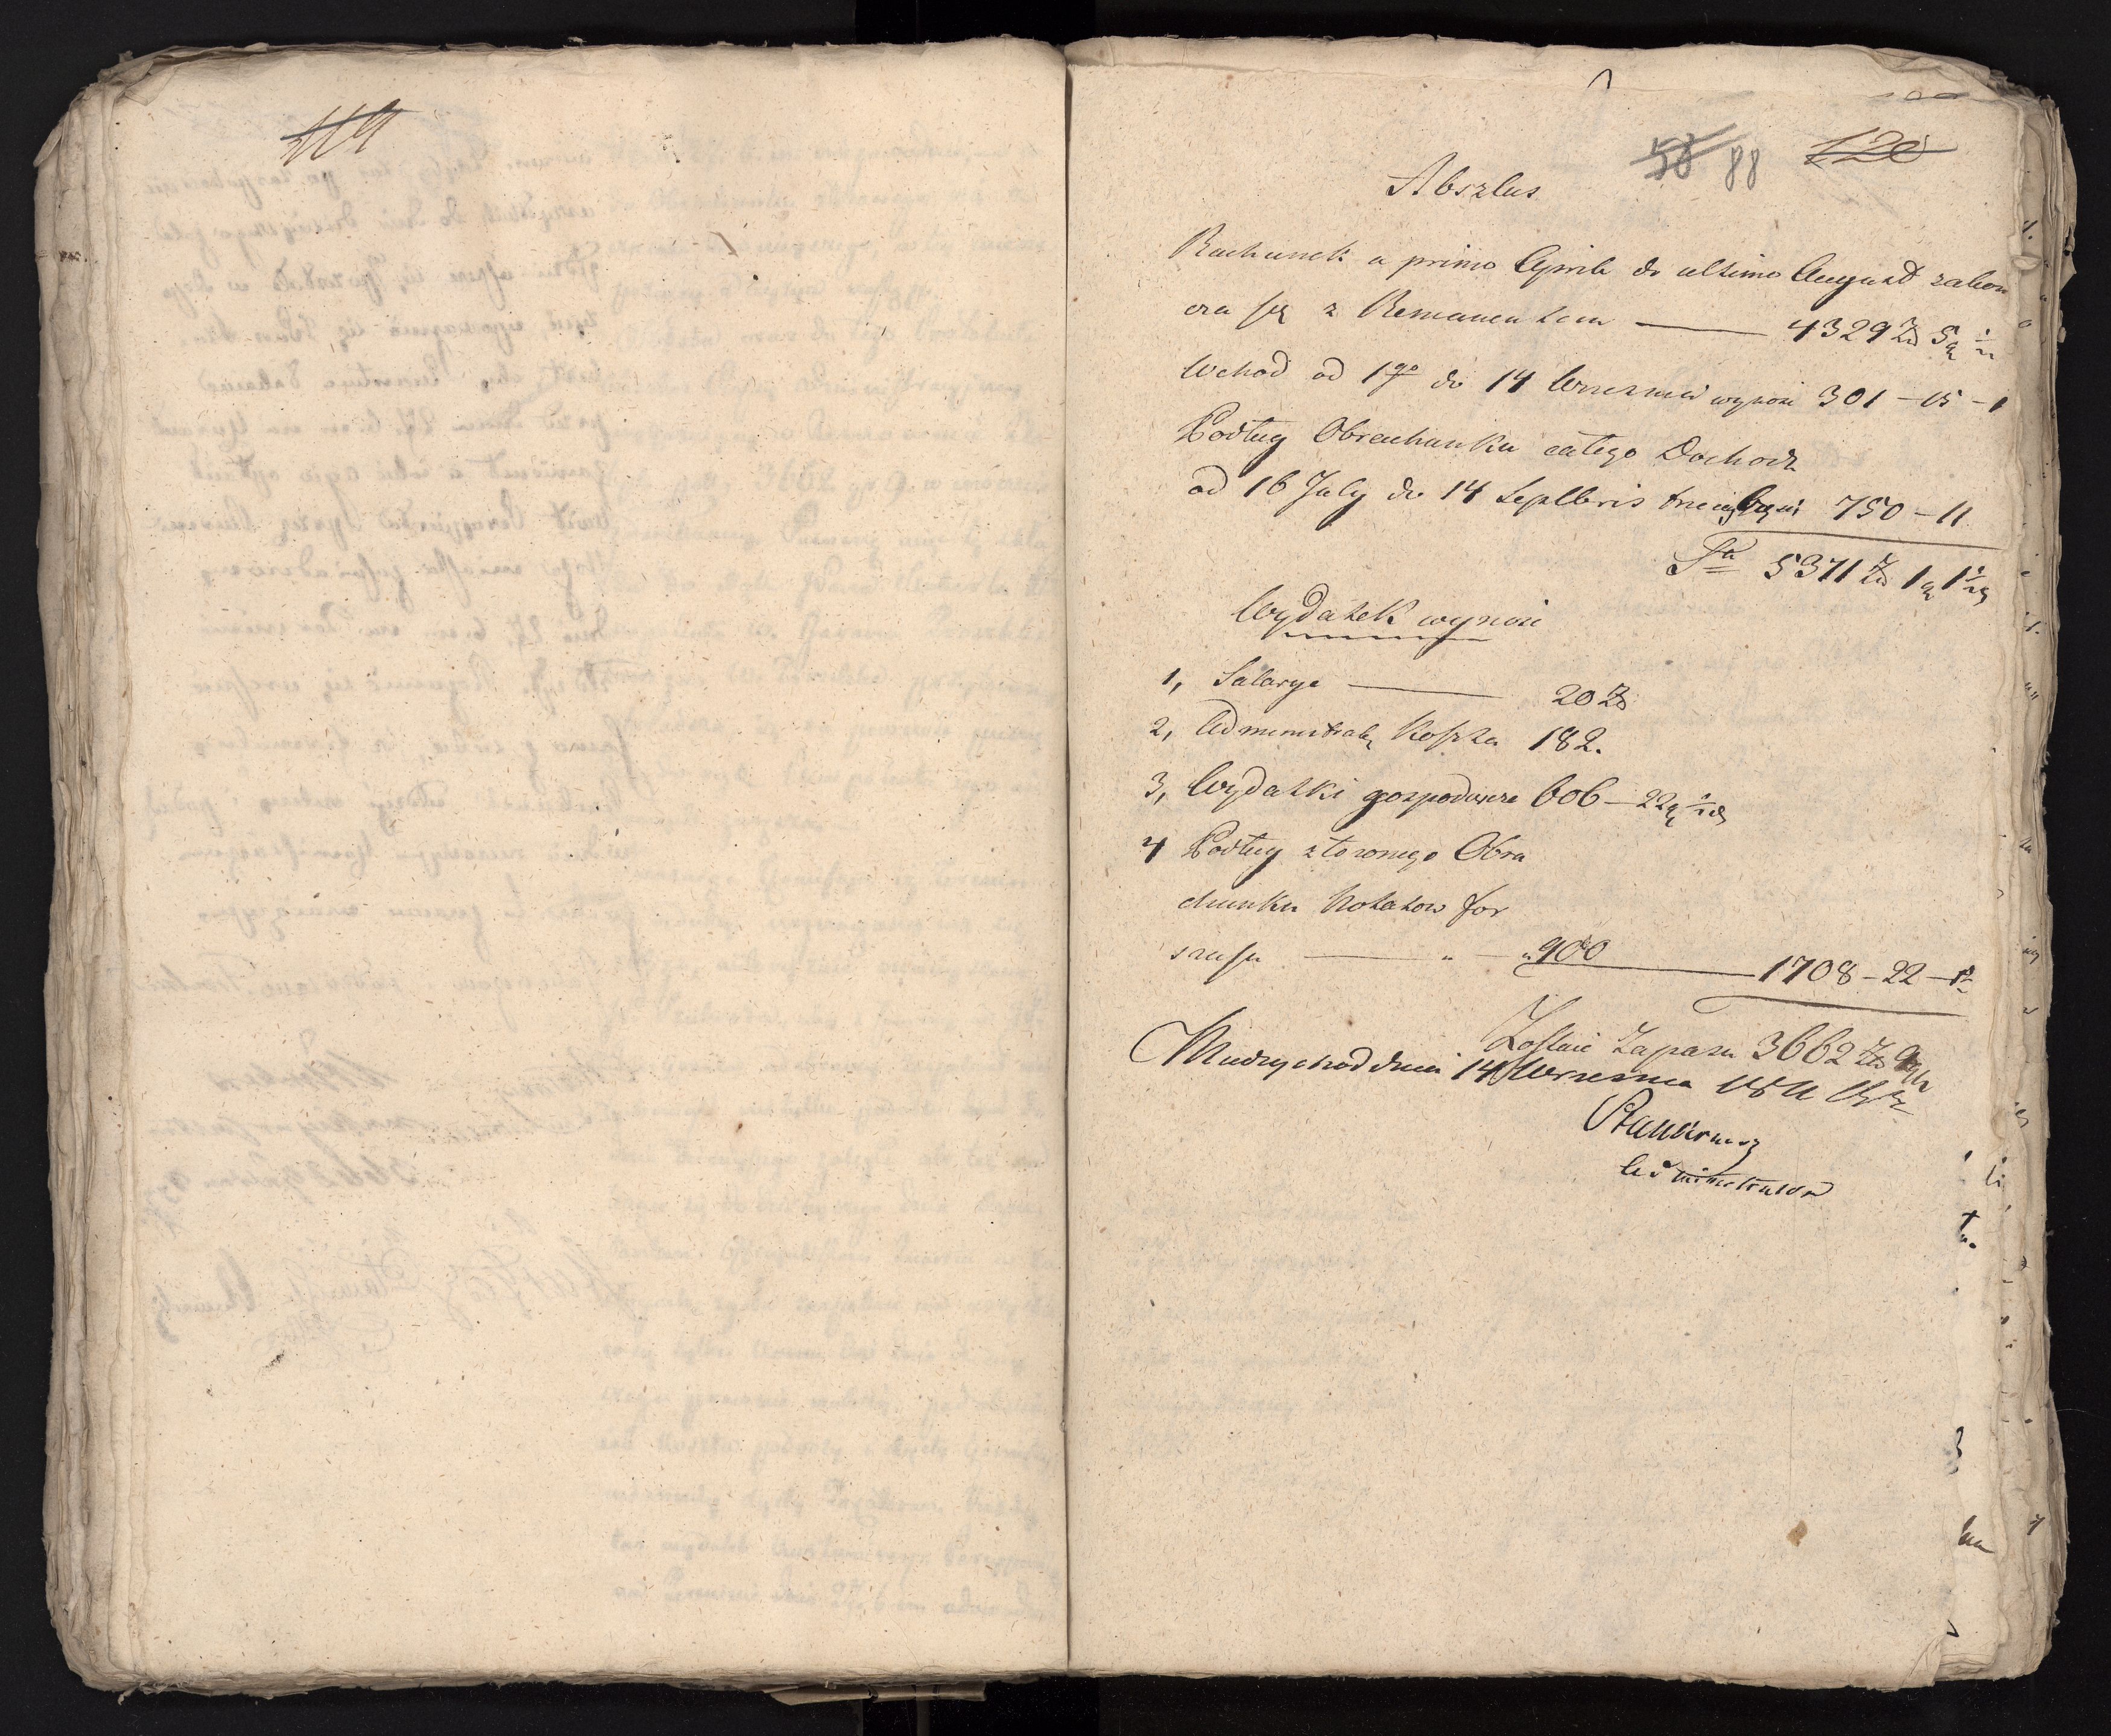 119
58 88 120
Abszlus
Rachunek a primo Aprils do ultimo August zakon
cza się z Remanentem — 4329 Zł 5 gr ½
Wchod od 1go do 14 Wrzesnia wynosi 301 – 15 – 1
Podług Obrachunku całego Dochodu
od 16 July do 14 Septbris 750 – 11
Sa 5371 Zł 1 gr 1½
Wydatek wynosi
1, Salarye — 20 Zł
2, Administraty Koszta 182.
3, Wydatki gospodarze 606 – 22 gr ½
4 Podług złozonego Obra
chunku Notatow for
szusu — " — " 900 — 1708 – 22 – ½
Zostaie Zapasu 3662 Zł 9 gr
Miedzychod dnia 14 Wrzesnia 1811
Administrator